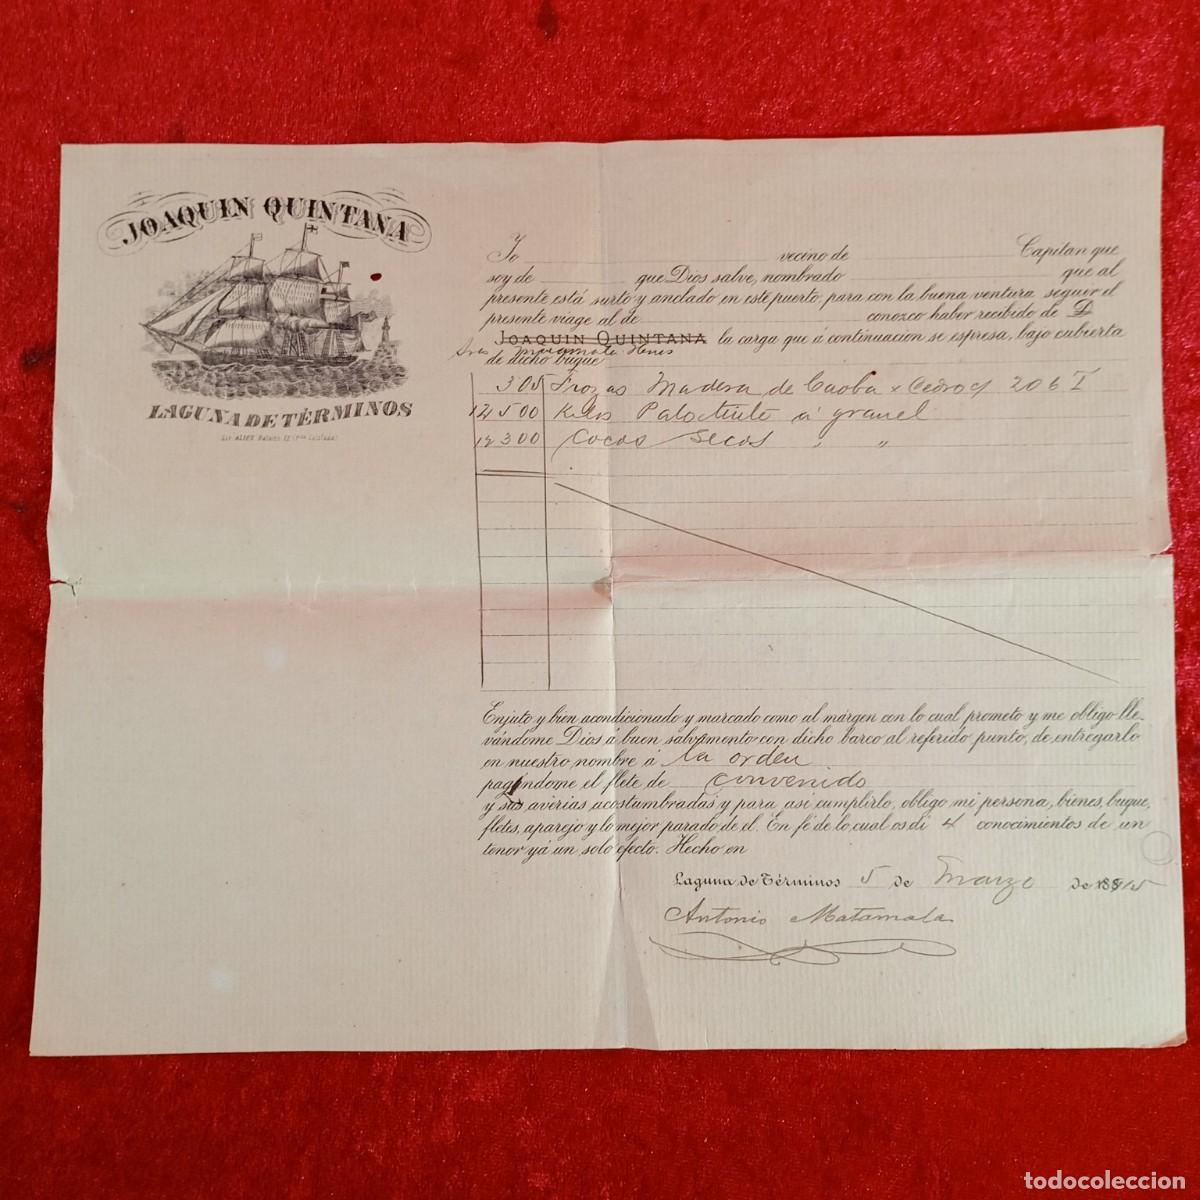 JOAQUIN QUINTANA
LAGUNA DE TÉRMINOS
Yo vecino de Capitan que
soy de que Dios salve, nombrado que al
presente está surto y anclado en este puerto, para con la buena ventura seguir el
presente viage al de conozco haber recibido de D
JOAQUIN QUINTANA la carga que á continuacion se espresa, bajo cubierta
Sres Matamala Hnos
de dicho buque
305 Trozas Madera de Caoba y Cedro c/ 206 T
12500 Kilos Palo tinte á granel
12300 Cocos Secos " "
Enjuto y bien acondicionado y marcado como al márgen con lo cual prometo y me obligo lle-
vándome Dios á buen salvamento con dicho barco al referido punto, de entregarlo
en nuestro nombre á la orden
pagándome el flete de convenido
y sus averias acostumbradas y para asi cumplirlo, obligo mi persona, bienes, buque,
fletes, aparejo y lo mejor parado de el. En fé de lo cual os di 4 conocimientos de un
tenor yá un solo efecto. Hecho en
Laguna de Términos 5 de Marzo de
Antonio Matamala
todocoleccion